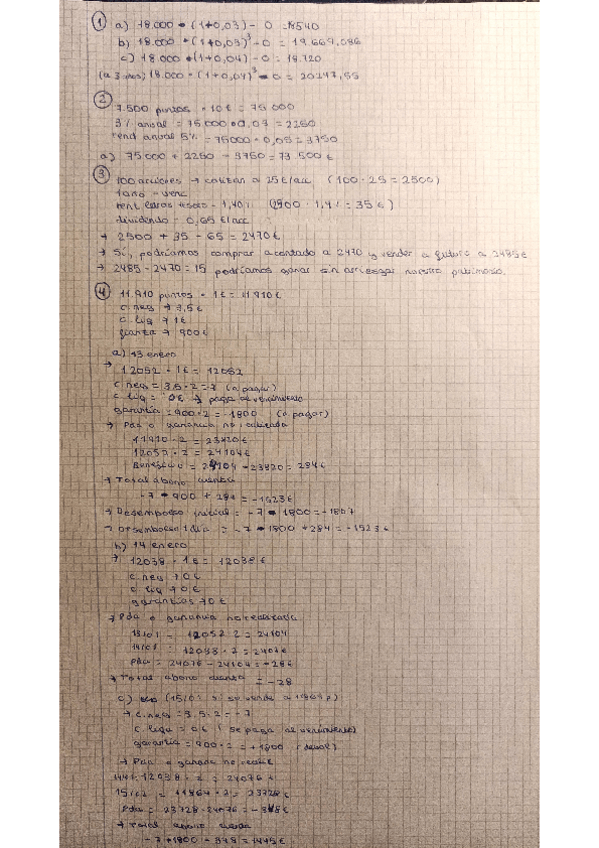 1 a) 18.000 * (1+0,03) - 0 = 18540
b) 18.000 * (1+0,03)³ - 0 = 19.669,086
c) 18.000 * (1+0,04) - 0 = 18.720
(a 3 años) 18.000 * (1+0,04)³ - 0 = 20247,55
2
7.500 puntos · 10€ = 75 000
3% anual = 75 000 * 0,03 = 2250
rend anual 5% = 75000 * 0,05 = 3750
a) 75 000 + 2250 - 3750 = 73.500€
3
100 acciones → cotizan a 25€/acc (100 · 25 = 2500)
1 año venc
rent letras tesoro = 1,40% (2500 · 1,4% = 35€)
dividendo = 0,65€/acc
→ 2500 + 35 - 65 = 2470€
→ Sí, podríamos comprar a contado a 2470 y vender a futuro a 2485€
→ 2485 - 2470 = 15 podríamos ganar sin arriesgar nuestro patrimonio.
4
11.910 puntos · 1€ = 11910€
c. neg → 3,5€
c. liq → 1€
garantía → 900€
a) 13 enero
→ 12052 · 1€ = 12052
c. neg = 3,5 · 2 = 7 (a pagar)
c. liq = 0€ → paga al vencimiento
garantía = 900 · 2 = -1800 (a pagar)
→ Pda o ganancia no realizada
11910 · 2 = 23820€
12052 · 2 = 24104€
Beneficio = 24104 - 23820 = 284€
→ Total abono cuenta
-7 - 900 + 284 = -1523€
→ Desembolso inicial = -7 - 1800 = -1807
→ Desembolso 1 día = -7 - 1800 + 284 = -1523€
b) 14 enero
→ 12038 · 1€ = 12038€
c. neg → 0€
c. liq → 0€
garantías → 0€
→ Pda o ganancia no realizada
13/01 = 12052 · 2 = 24104
14/01 : 12038 · 2 = 24076
Pda = 24076 - 24104 = -28€
→ Total abono cuenta = -28
c) (15/01 si se vende a 11864 p)
→ c. neg = 3,5 · 2 = -7
c. liq = 0€ (se paga al vencimiento)
garantía = 900 · 2 = +1800 (deval)
→ Pda o ganada no realiz
14/01: 12038 · 2 = 24076€
15/01 = 11864 · 2 = 23728€
Pda = 23728 - 24076 = -348€
→ Total abono cuenta
-7 + 1800 - 348 = 1445€